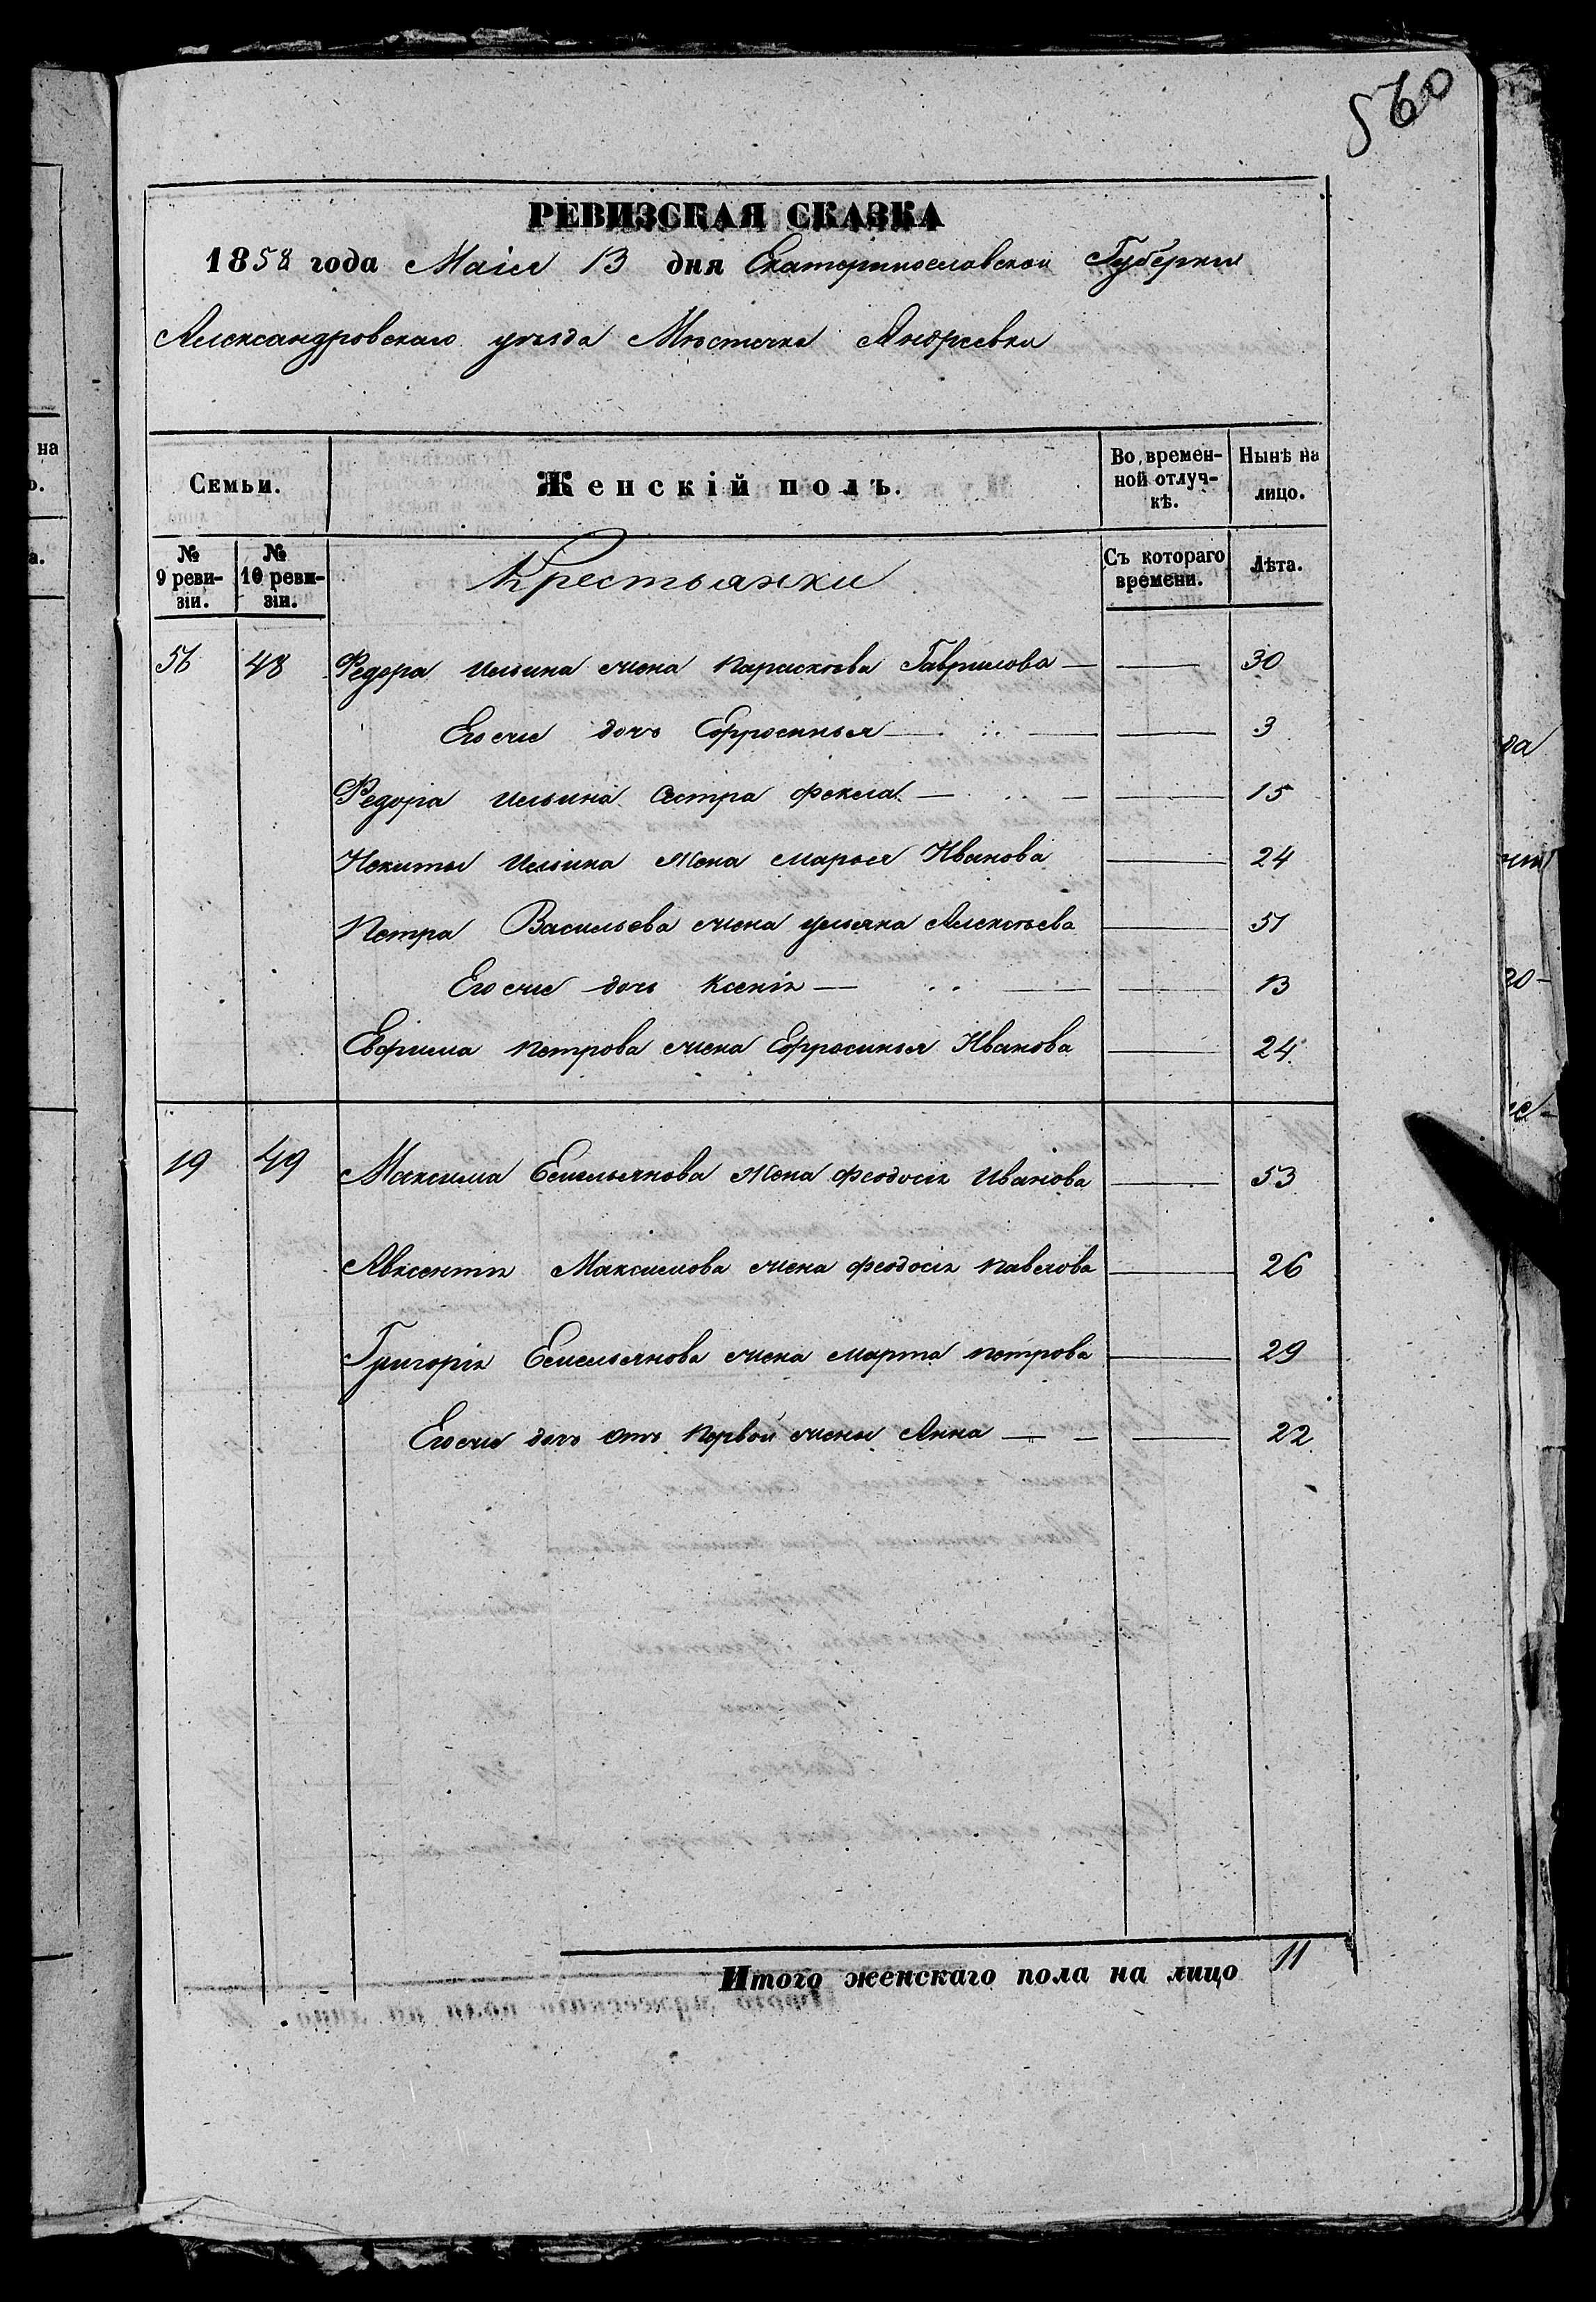 560
РЕВИЗСКАЯ СКАЗКА
1858 года Маія 13 дня Екатеринославской Губерніи
Александровскаго уѣзда Мѣстечка Андреевки
Семьи. Женскій полъ. Во времен-ной отлуч-кѣ. Нынѣ на лицо.
№ 9 реви-зіи. № 10 реви-зіи. Крестьянки Съ котораго времени. Лѣта.
56 48 Федора Ильина жена Парасковья Гаврилова — 30
Его же дочь Ефросинья — 3
Федора Ильина Сестра Фекла — 15
Некиты Ильина Жена Марья Иванова — 24
Петра Васильева жена Ульяна Алексѣева — 51
Его же дочь Ксенія — 13
Евфима Петрова жена Ефросинья Иванова — 24
19 49 Максима Емельянова Жена Феодосія Иванова — 53
Авксентія Максимова жена Феодосія Павлова — 26
Григорія Емельянова жена Марта Петрова — 29
Его же дочь отъ Первой жены Анна — 22
Итого женскаго пола на лицо 11